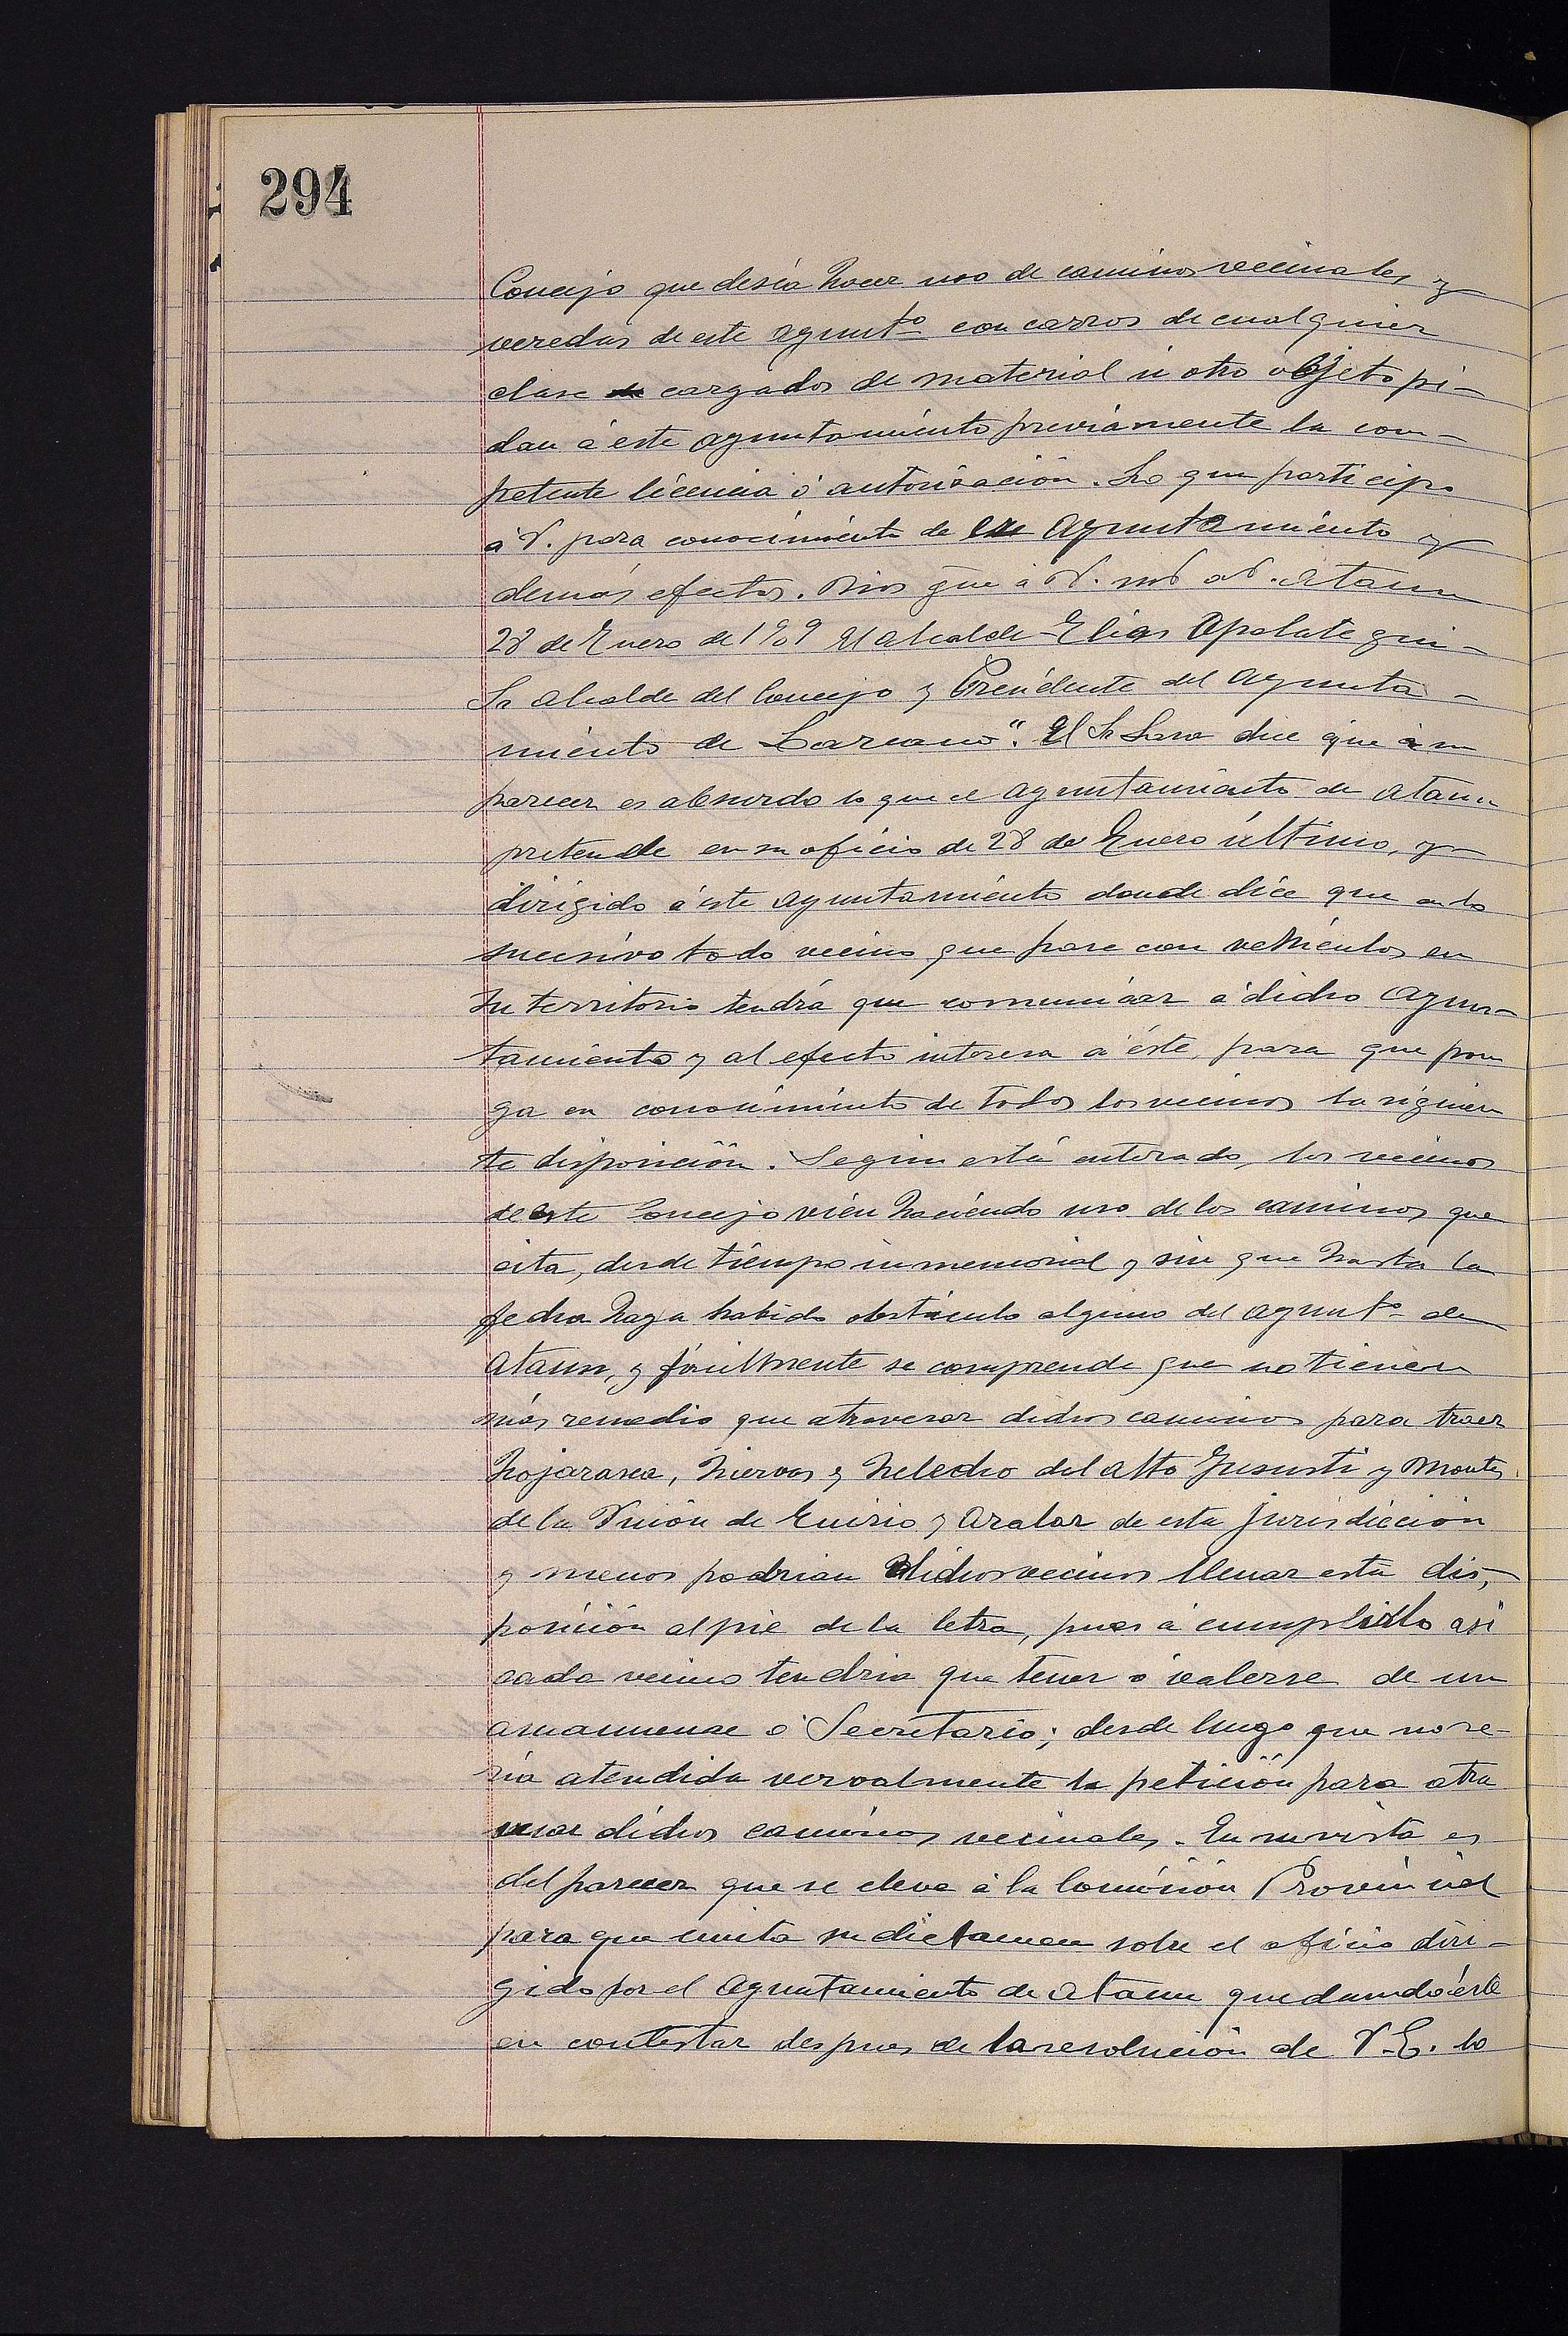 294
Concejo que deséa hacer uso de caminos vecinales y
veredas de este ayuntº con carros de cualquier
clase cargados de material ú otro objeto pi-
dan á este ayuntamiento previamente la com-
petente licencia ó autorisación. Lo que participo
á V. para conocimiento de ese Ayuntamiento y
demás efectos. Dios gūe á V. ms as. Ataun
28 de Enero de 1909 El alcalde-Elias Apalategui-
Sr alcalde del Concejo y Presidente del Ayunta-
miento de Lazcano". El Sr Lasa dice que á su
parecer es absurdo lo que el ayuntamiento de Ataun
pretende en su oficio de 28 de Enero último, y
dirigido á este ayuntamiento donde dice que en lo
sucesivo todo vecino que pase con vehiculos en
su territorio tendrá que comunicar á dicho Ayun-
tamiento y al efecto interesa á éste, para que pon
ga en conocimiento de todos los vecinos la siguien
te disposición. Según está enterado, los vecinos
de este Concejo vién haciéndo uso de los caminos que
cita, desde tiempo inmemorial y sin que hasta la
fecha haya habido obstáculo alguno del ayuntº de
Ataun, y facilmente se comprende que no tienen
más remedio que atravesar dichos caminos para traer
hojarasca, hiervas y helecho del alto Jususti y Montes
de la Unión de Enirio y Aralar de esta jurisdicción
y menos podrian dichos vecinos llenar esta dis-
posición al pie de la letra, pues á cumplirlo asi
cada vecino tendria que tener ó valerse de un
amanuense ó Secretario; desde luego que no se-
ria atendida vervalmente la petición para atra
vesar dichos caminos vecinales. En su vista es
del parecer que se eleve á la Comisión Provincial
para que emita su dictamen sobre el oficio diri-
gido por el Ayuntamiento de Ataun quedando éste
en contestar despues de la resolución de V.E. lo